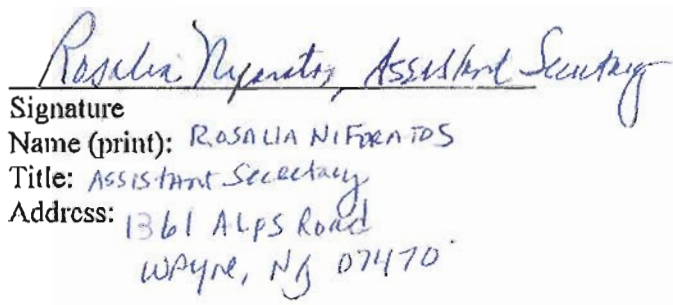 Rosalia Niforatos, Assistant Secretary
Signature
Name (print): ROSALIA NIFORATOS
Title: Assistant Secretary
Address: 1361 Alps Road
Wayne, NJ 07470